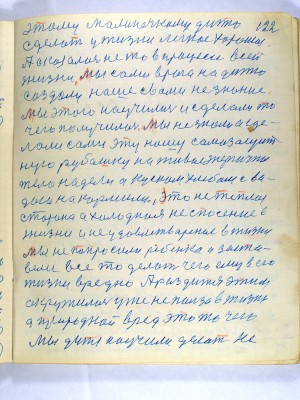 этому маленькому дитю 122
сделать у жизни легкое хорошее
А оказался не то в процессе всей
жизни, Мы сами врага на дитю
создали наше с вами незнание.
Мы этого научились и сделали то
чего получилось, Мы не знали а сде-
лали сами эту нашу самозащит-
ную рубашку на живое энергично
тело надели а куском хлебом с во-
дою накормили, Это не теплая
сторона а холодная не спасение в
жизни и неудовлетворение в жизни
Мы не попросили ребенка а заста-
вили все то делать чего ему в его
жизни вредно А раз дитя этим
окружились уже не польза в жизни
а природной вред это то чего
Мы дитя научили делать не